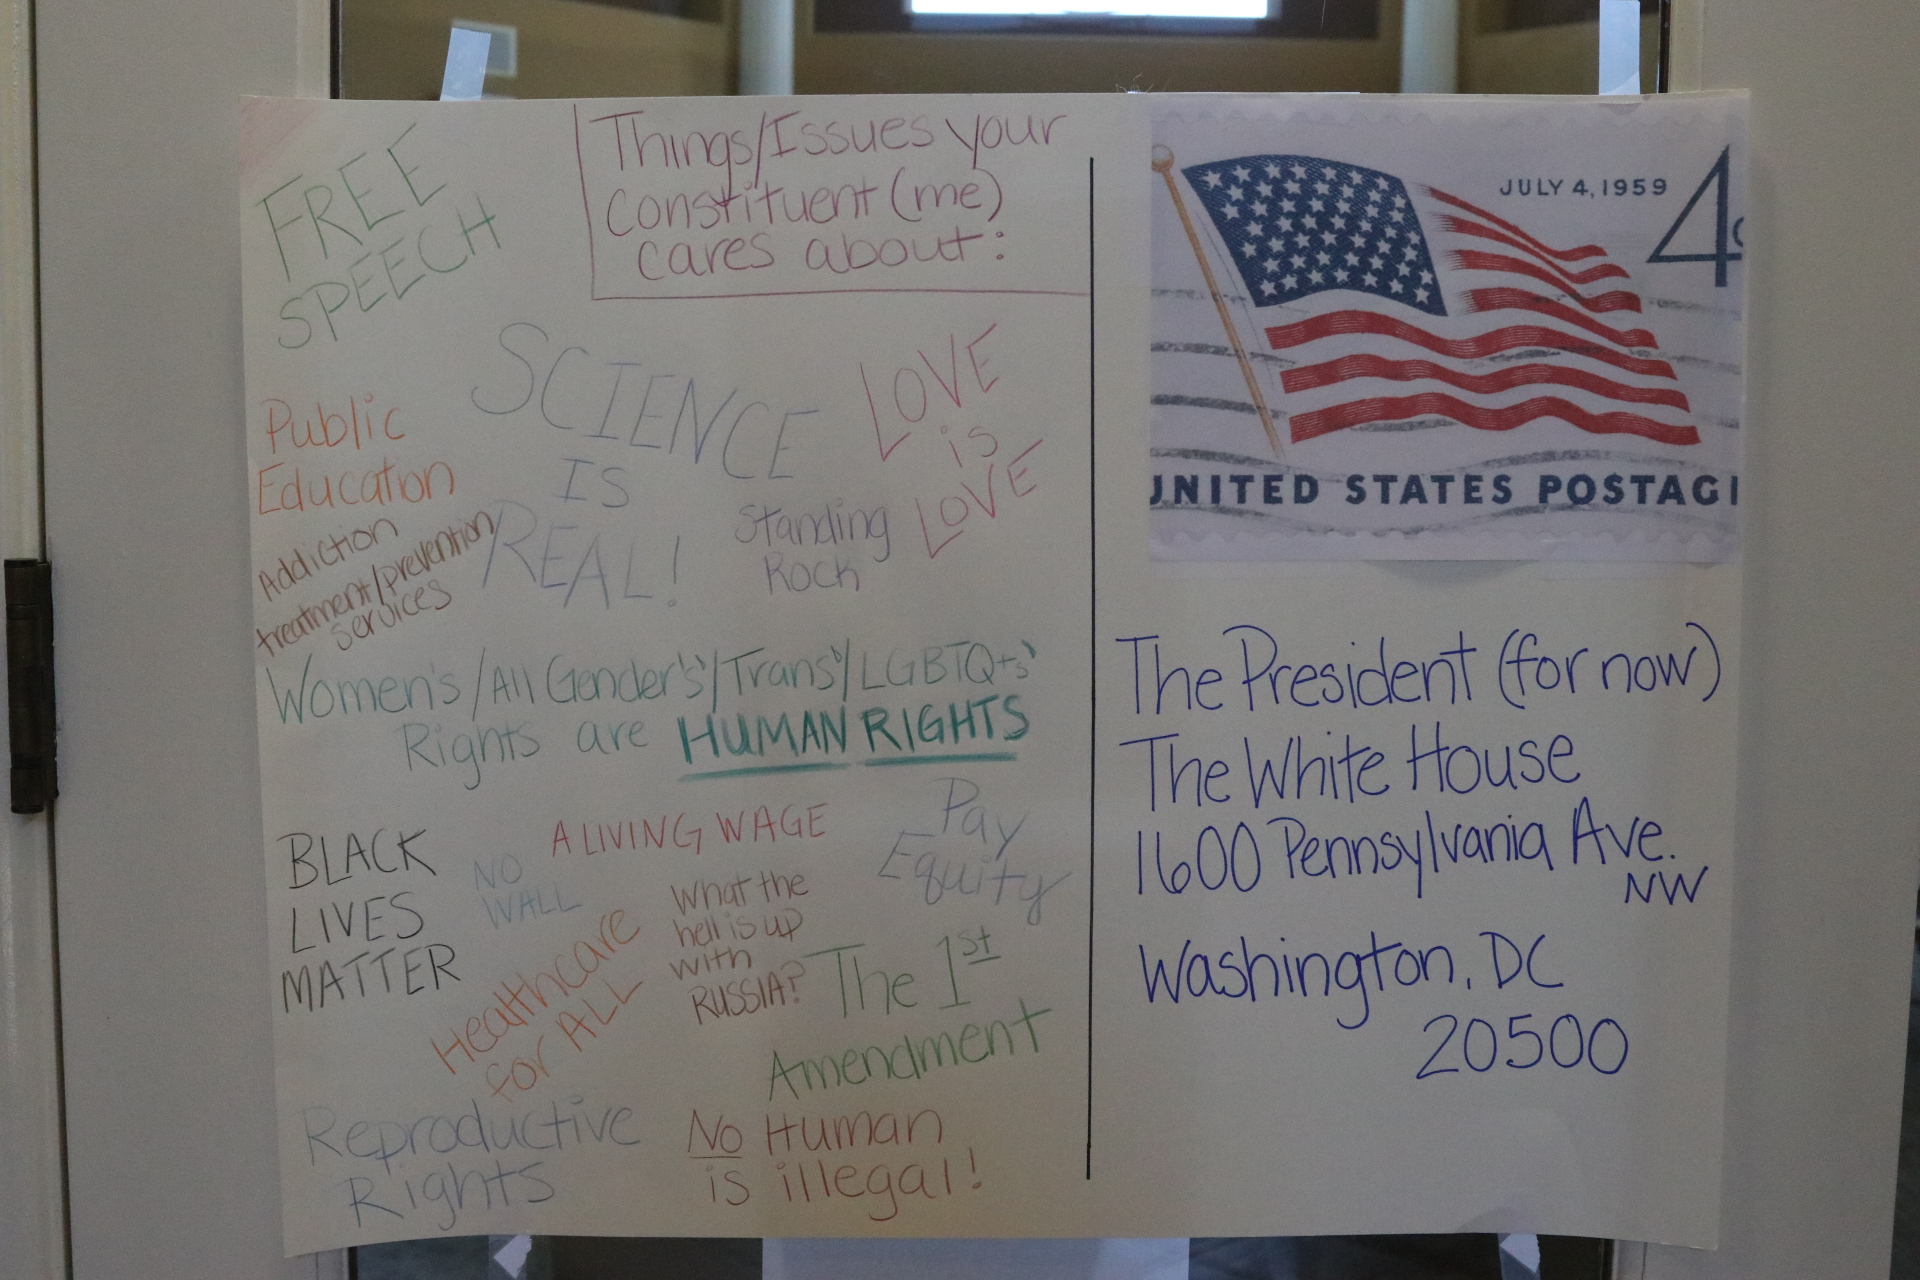 FREE
SPEECH
Things/Issues your
Constituent (me)
cares about:
SCIENCE
IS
REAL!
LOVE
is
LOVE
Public
Education
Addiction
treatment/prevention
services
Standing
Rock
Women's/All Gender's'/Trans'/LGBTQ+s'
Rights are HUMAN RIGHTS
BLACK
LIVES
MATTER
NO
WALL
A LIVING WAGE
Pay
Equity
Healthcare
for ALL
What the
hell is up
with
RUSSIA?
The 1st
Amendment
Reproductive
Rights
No Human
is illegal!
JULY 4, 1959
4c
UNITED STATES POSTAGE
The President (for now)
The White House
1600 Pennsylvania Ave.
NW
Washington, DC
20500